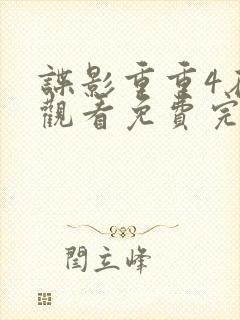 諜影重重4
觀看免費完
閆立峰